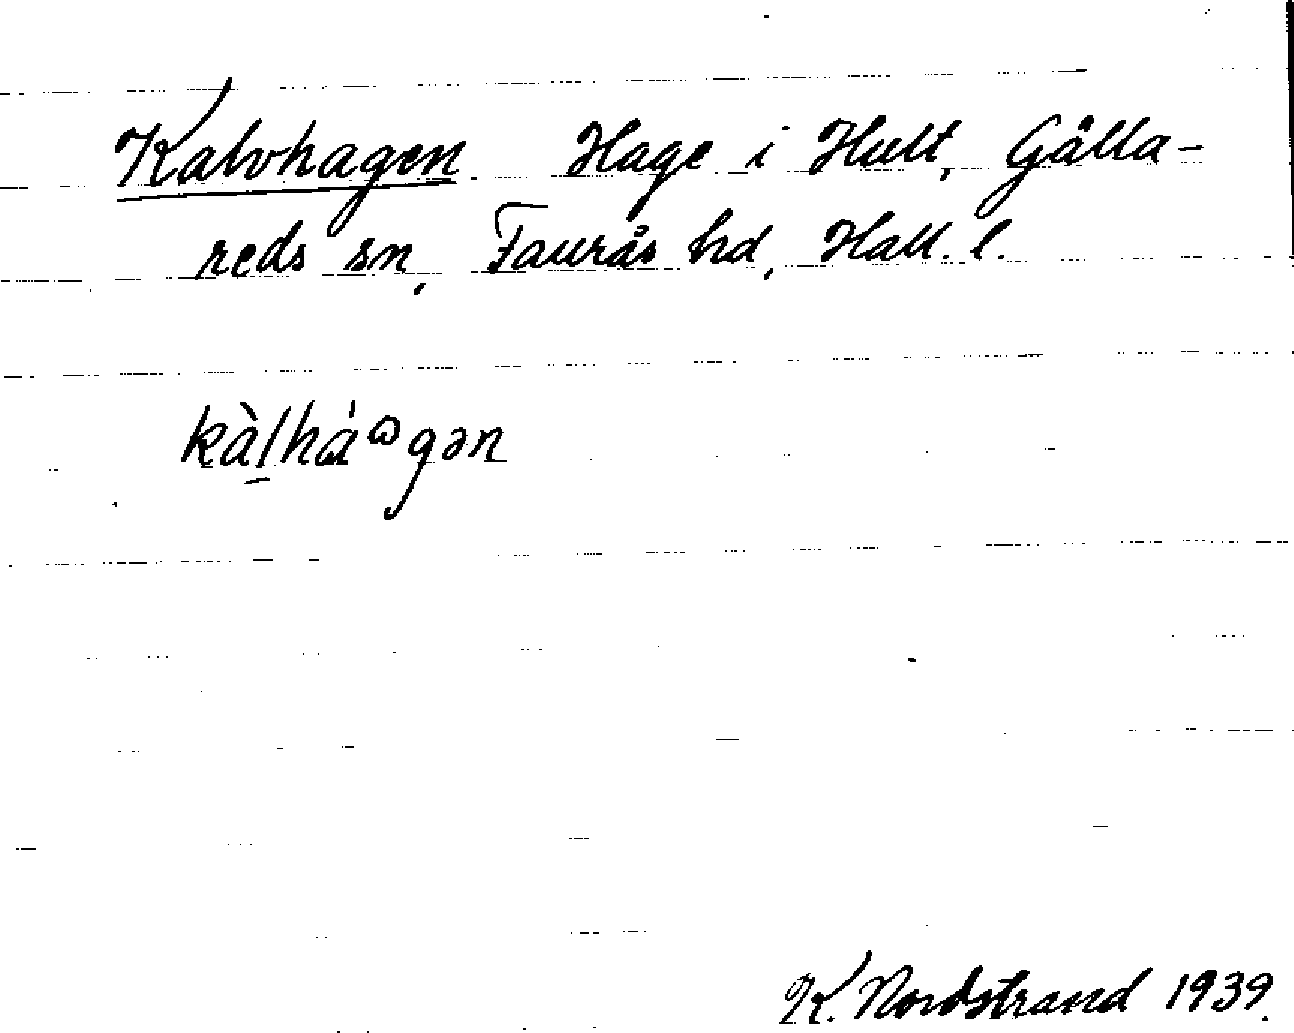 Kalvhagen. Hage i Hult, Gälla-
reds sn, Faurås hd, Hall. l.
kàl̠há𝆩gən
K. Nordstrand 1939.